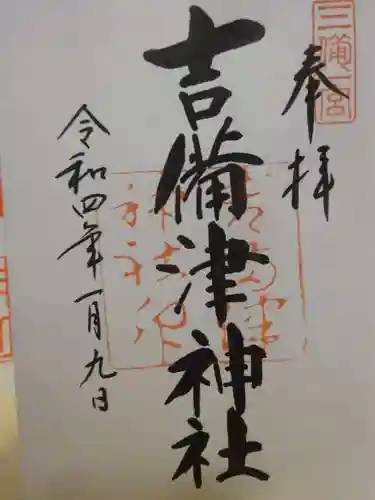 三備一宮
奉拝
吉備津神社
令和四年一月九日